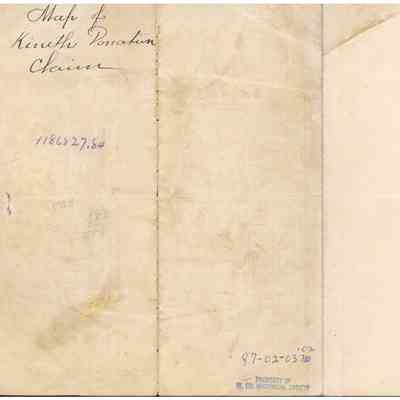 Map of
Kineth Donation
Claim
1186827.84
.02
87-02-03
PROPERTY OF
HISTORICAL SOCIETY